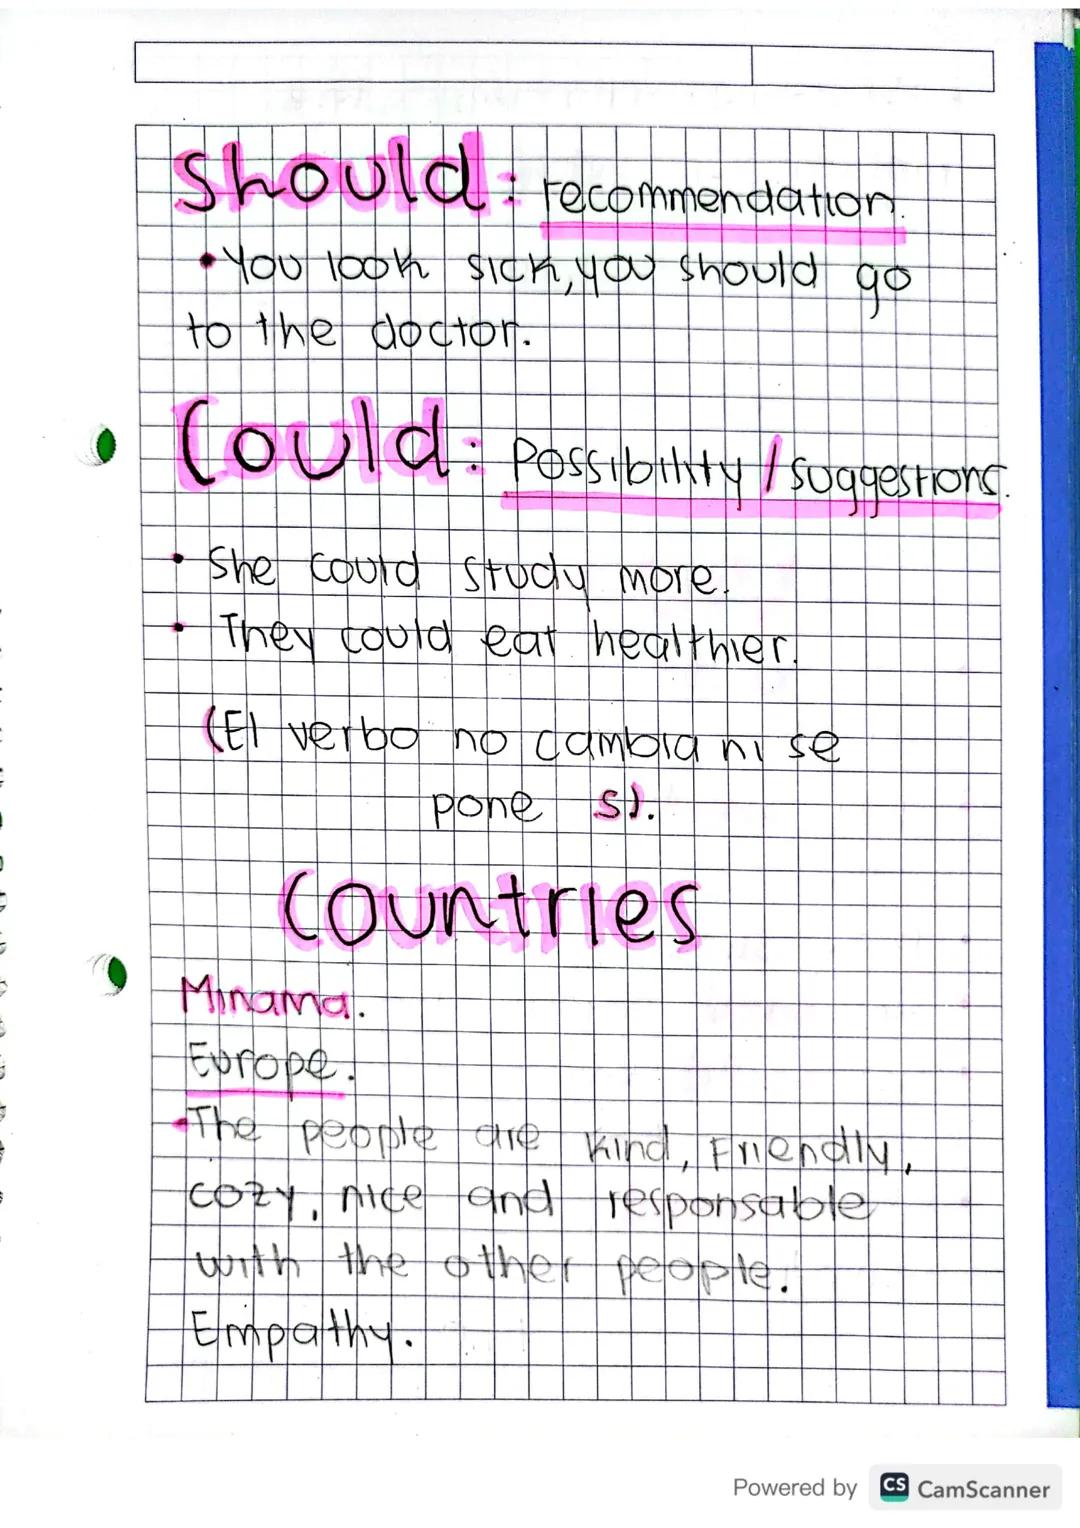 Should: recommendation.
• You look sick, you should go
to the doctor.
Could: Possibility / suggestions.
• She could study more.
• They could eat healthier.
(El verbo no cambia ni se
pone s).
Countries
Minama.
Europe.
• The people are kind, Friendly,
cozy, nice and responsable
with the other people.
Empathy.
Powered by CS CamScanner